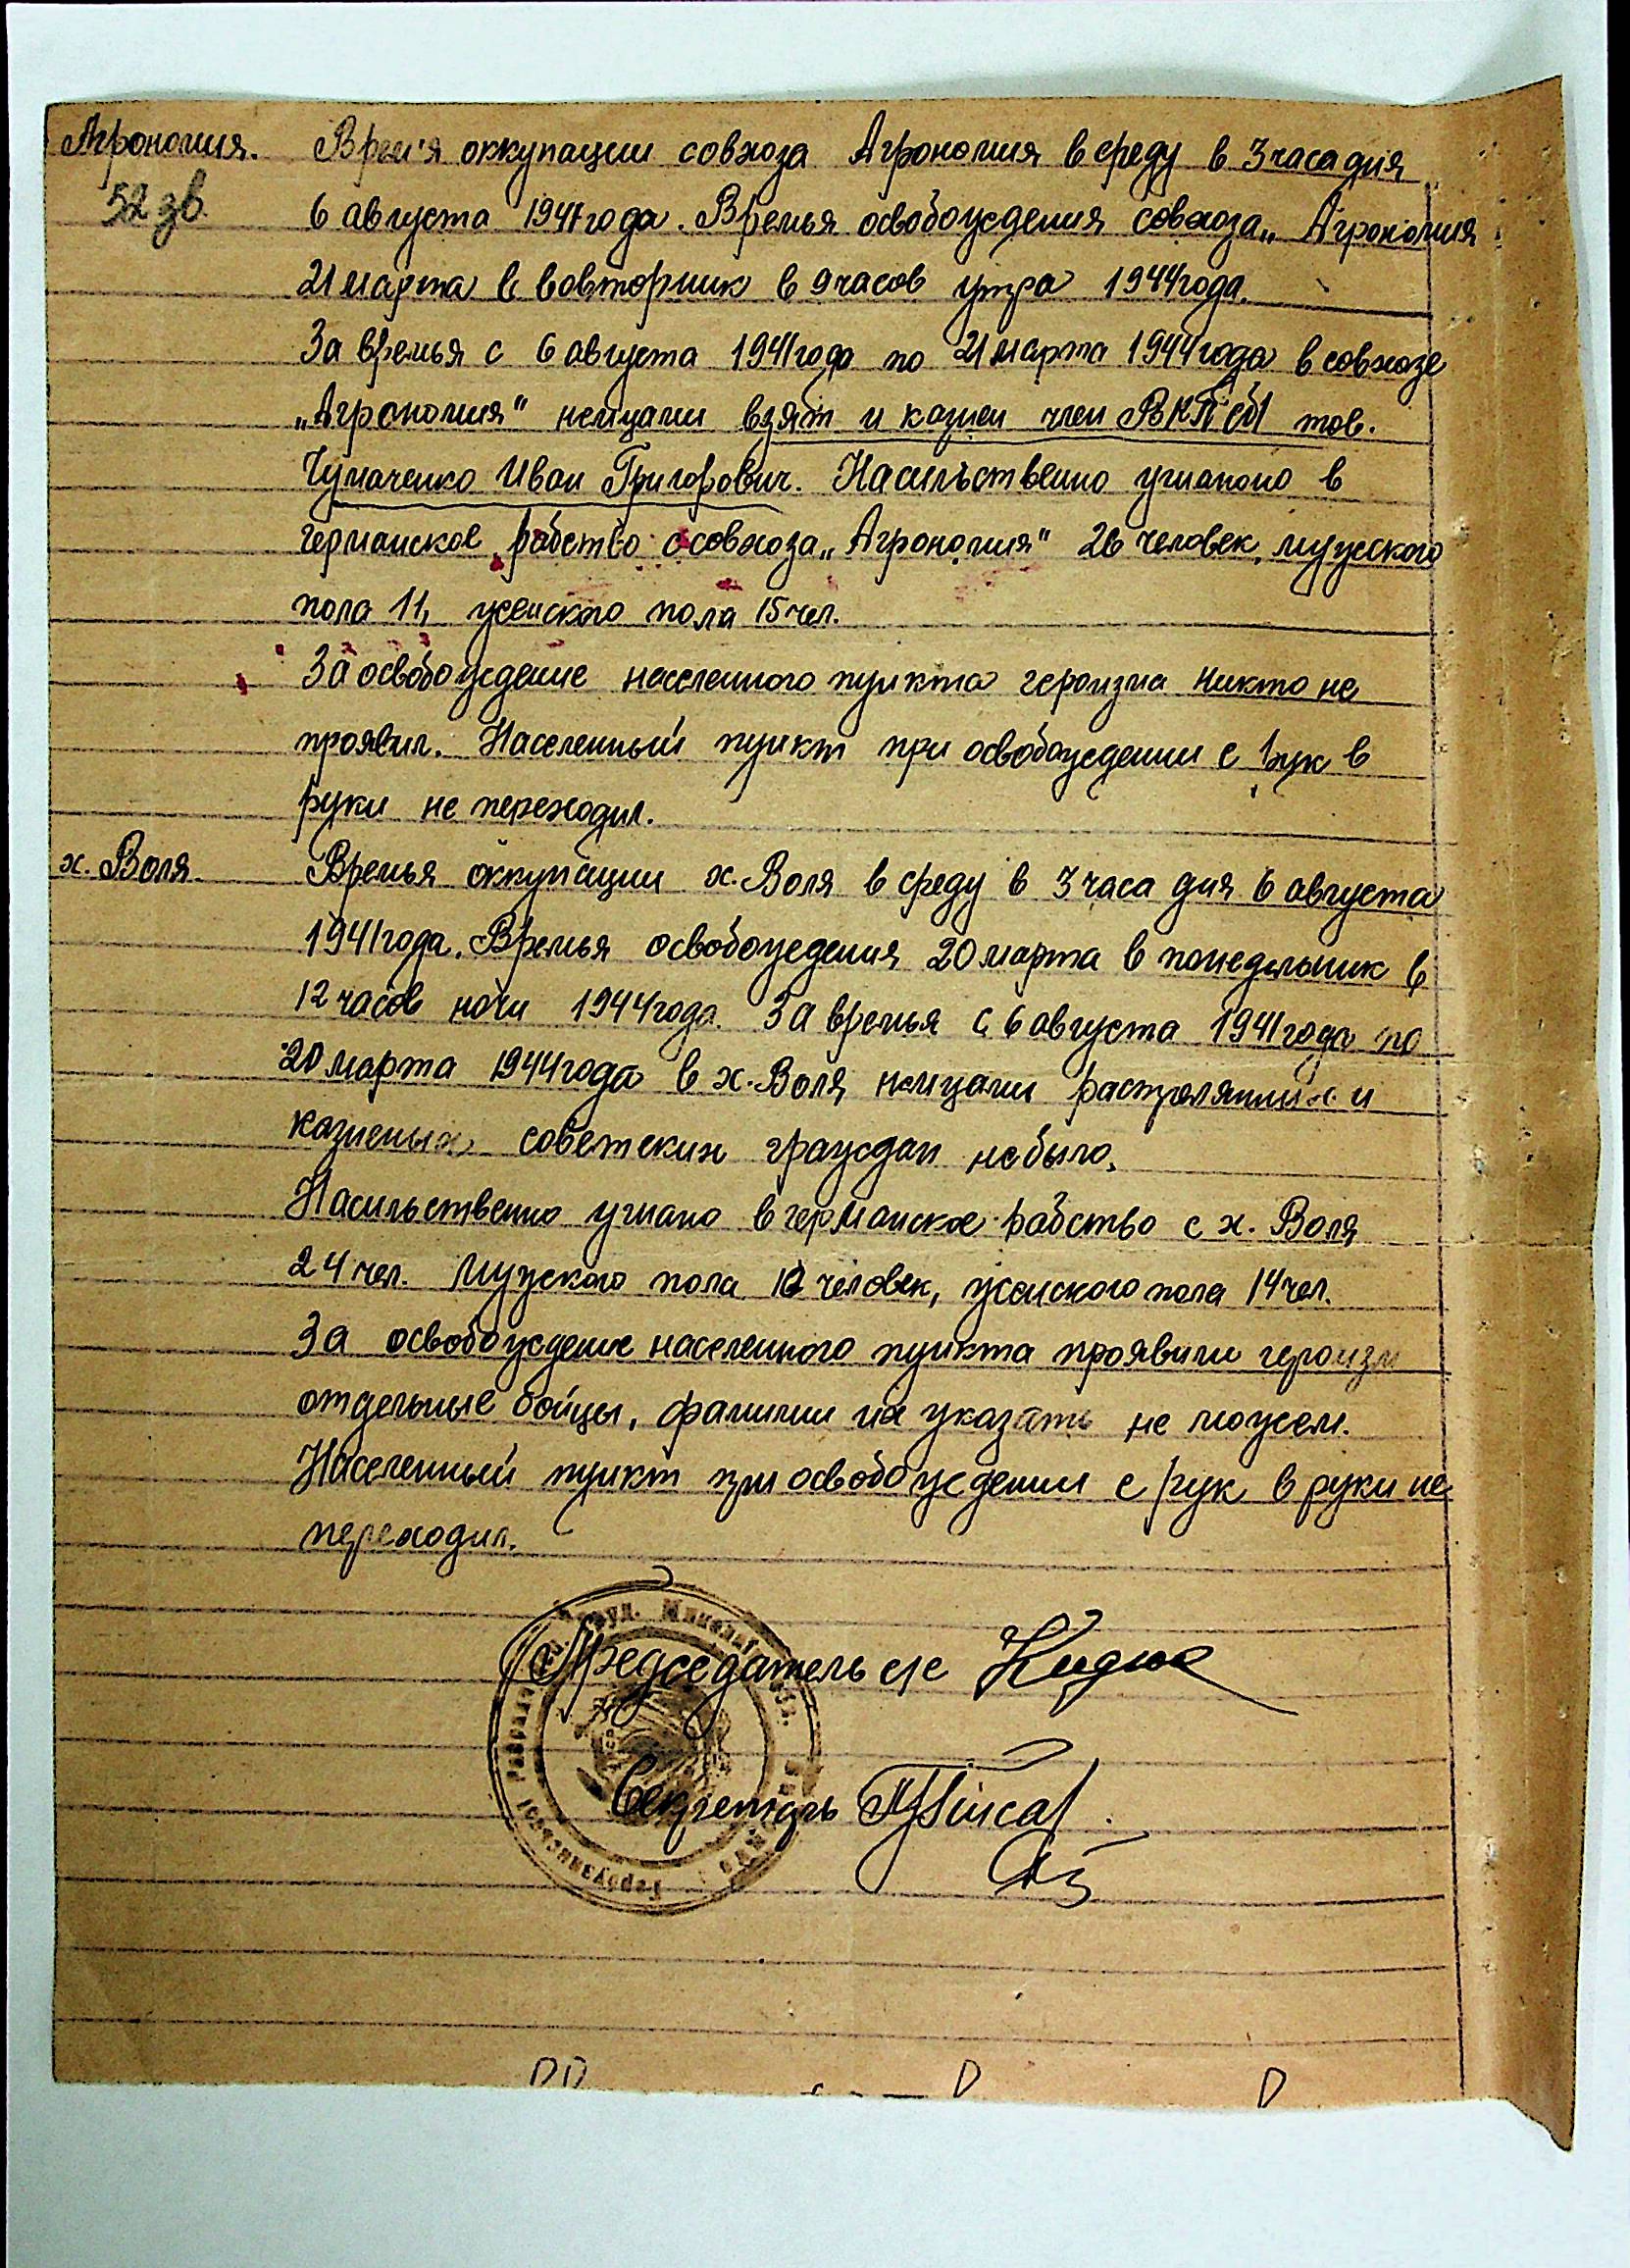 Агрономия. Время оккупации совхоза Агрономия в среду в 3 часа дня
52 зв. 6 августа 1941 года. Времья освобождения совхоза „Агрономия
21 марта в вовторник в 9 часов утра 1944 года.
За времья с 6 августа 1941 года по 21 марта 1944 года в совхозе
„Агрономия" немцами взят и казнен член ВКП(б) тов.
Чумаченко Иван Григорович. Насильственно угнаноно в
германское рабство с совхоза „Агрономия" 26 человек, мужского
пола 11, женского пола 15 чел.
За освобождение населенного пункта героизма никто не
проявил. Населенный пункт при освобождении с рук в
руки не переходил.
х. Воля. Времья оккупации х. Воля в среду в 3 часа дня 6 августа
1941 года. Времья освобождения 20 марта в понедельник в
12 часов ночи 1944 года. За времья с 6 августа 1941 года по
20 марта 1944 года в х. Воля немцами растреляных и
казненых советских граждан небыло.
Насильственно угнано в германское рабство с х. Воля
24 чел. Мужского пола 10 человек, женского пола 14 чел.
За освобождение населенного пункта проявили героизм
отдельные бойцы, фамилии их указать не можем.
Населенный пункт при освобождении с рук в руки не
переходил.
Председатель с/с
Секретарь